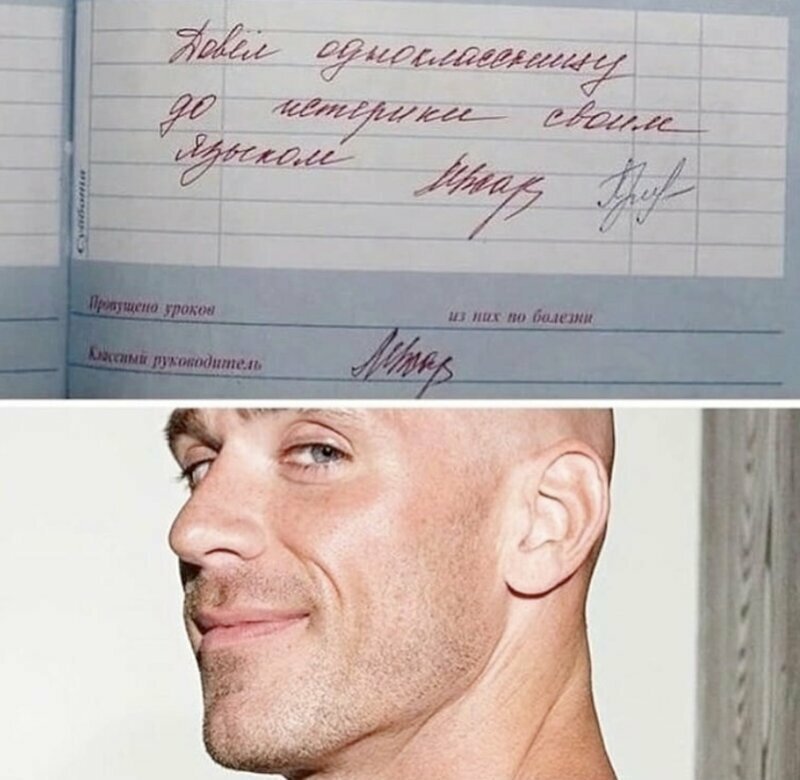 Довёл одноклассницу
до истерики своим
языком
Суббота
Пропущено уроков из них по болезни
Классный руководитель